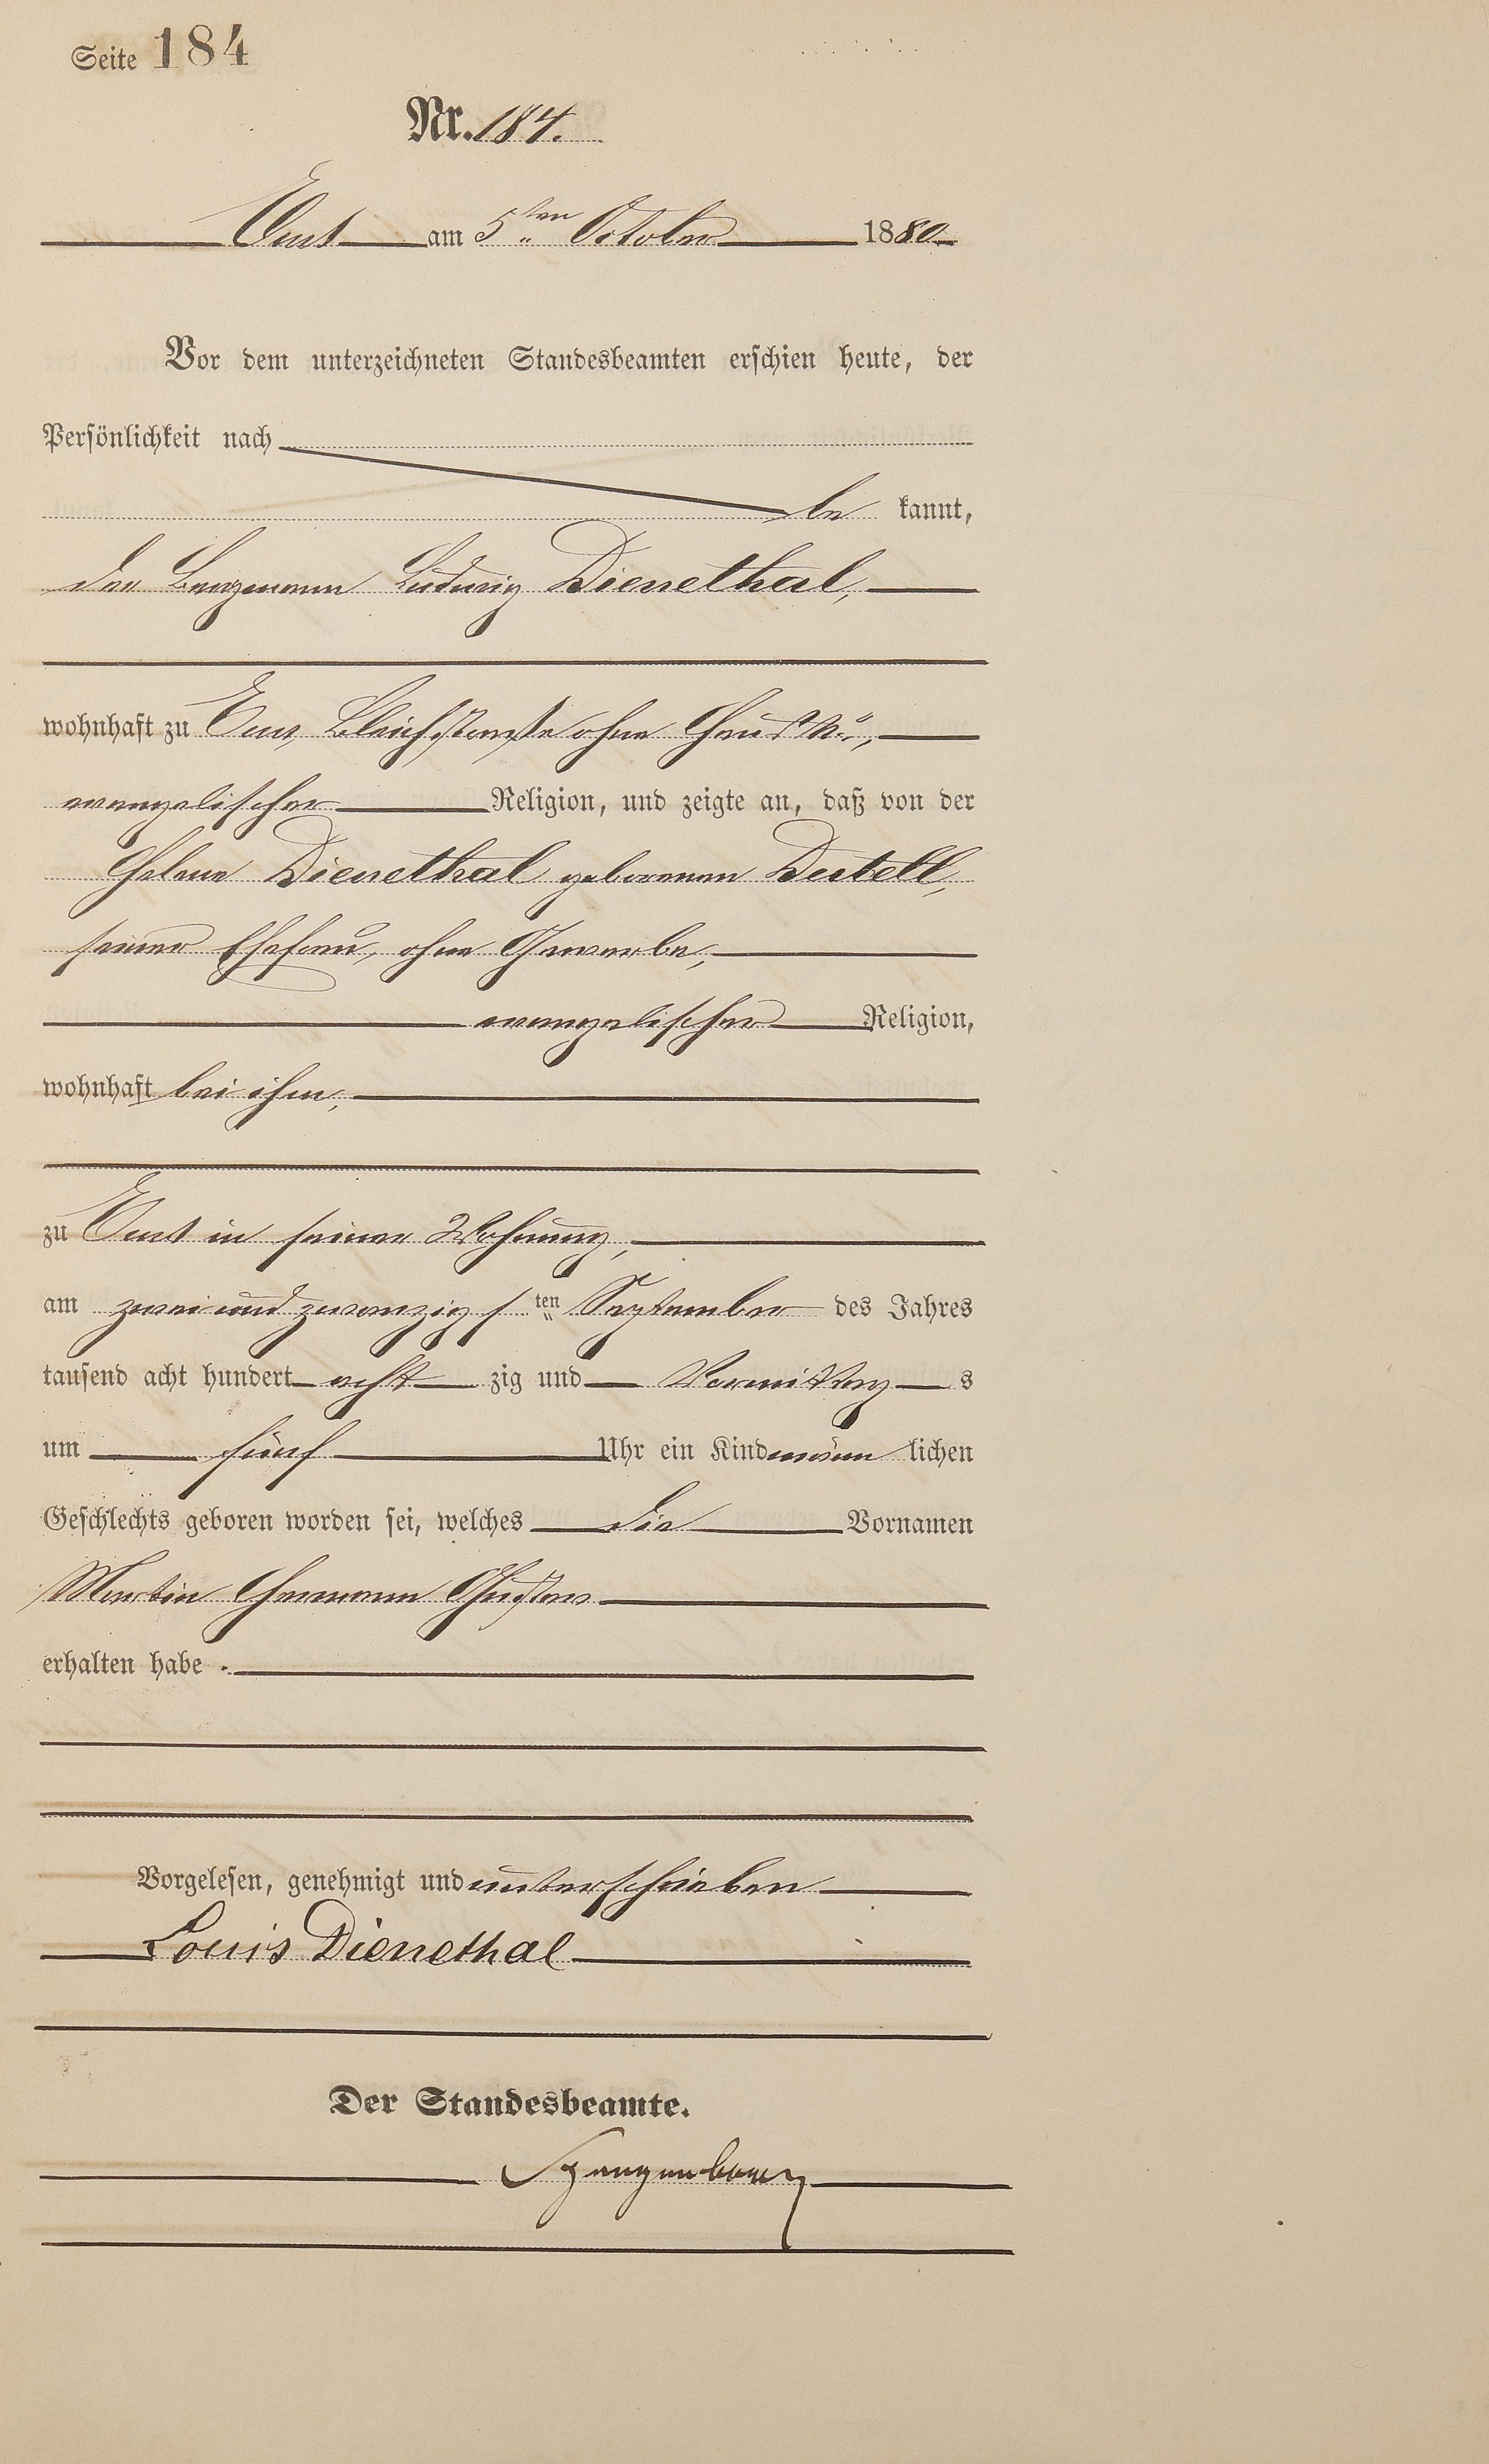 Seite 184
Nr. 184.
Ems am 5ten October 1880
Vor dem unterzeichneten Standesbeamten erschien heute, der
Persönlichkeit nach
be kannt,
der Bergmann Ludwig Dienethal,
wohnhaft zu Ems, Bleichstraße ohne Haus No,
evangelischer Religion, und zeigte an, daß von der
Helene Dienethal geborenen Dubell,
seiner Ehefrau, ohne Gewerbe,
evangelischer Religion,
wohnhaft bei ihm,
zu Ems in seiner Wohnung,
am zwei und zwanzigsten September des Jahres
tausend acht hundert acht zig und Vormittags
um fünf Uhr ein Kind männ lichen
Geschlechts geboren worden sei, welches die Vornamen
Martin Hermann Gustav
erhalten habe.
Vorgelesen, genehmigt und unterschrieben
Louis Dienethal
Der Standesbeamte.
Spangenberg